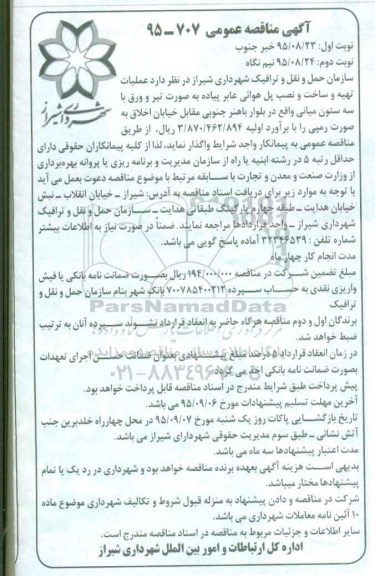 آگهی مناقصه عمومی ۷۰۷ – ۹۵
نوبت اول: ۹۵/۰۸/۲۳ خبر جنوب
نوبت دوم: ۹۵/۰۸/۲۴ نیم نگاه
شهرداری شیراز
سازمان حمل و نقل و ترافیک شهرداری شیراز در نظر دارد عملیات
تهیه و ساخت و نصب پل هوائی عابر پیاده به صورت تیر و ورق با
سه ستون میانی واقع در بلوار باهنر جنوبی مقابل خیابان اخلاق به
صورت زمینی را با برآورد اولیه ۳/۸۷۰/۴۶۲/۸۹۴ ریال، از طریق
مناقصه عمومی به پیمانکار واجد شرایط واگذار نماید، لذا از کلیه پیمانکاران حقوقی دارای
حداقل رتبه ۵ در رشته ابنیه یا راه از سازمان مدیریت و برنامه ریزی یا پروانه بهره‌برداری
از وزارت صنعت و معدن و تجارت با سابقه مرتبط با موضوع مناقصه دعوت بعمل می آید
با توجه به موارد زیر برای دریافت اسناد مناقصه به آدرس: شیراز – خیابان انقلاب – نبش
خیابان هدایت – طبقه چهارم پارکینگ طبقاتی هدایت – سازمان حمل و نقل و ترافیک
شهرداری شیراز – واحد قراردادها مراجعه نمایند. ضمناً در صورت نیاز به اطلاعات بیشتر
شماره تلفن: ۳۲۳۴۶۵۳۹ آماده پاسخ گویی می باشد.
مدت انجام کار چهار ماه
مبلغ تضمین شرکت در مناقصه ۱۹۴/۰۰۰/۰۰۰ ریال بصورت ضمانت نامه بانکی یا فیش
واریزی نقدی به حساب سپرده ۷۰۰۷۸۵۴۰۰۲۱۲ بانک شهر بنام سازمان حمل و نقل و
ترافیک
برندگان اول و دوم مناقصه هرگاه حاضر به انعقاد قرارداد نشوند سپرده آنان به ترتیب
ضبط خواهد شد.
در زمان انعقاد قرارداد ۵ درصد مبلغ پیشنهادی بعنوان ضمانت حسن اجرای تعهدات
بصورت ضمانت نامه بانکی اخذ می گردد.
پیش پرداخت طبق شرایط مندرج در اسناد مناقصه قابل پرداخت خواهد بود.
آخرین مهلت تسلیم پیشنهادات مورخ ۹۵/۰۹/۰۶ می باشد.
تاریخ بازگشایی پاکات روز یک شنبه مورخ ۹۵/۰۹/۰۷ در محل چهارراه خلدبرین جنب
آتش نشانی – طبق سوم مدیریت حقوقی شهرداری شیراز می باشد.
مدت اعتبار پیشنهادها سه ماه می باشد.
بدیهی است هزینه آگهی بعهده برنده مناقصه خواهد بود و شهرداری در رد یک یا تمام
پیشنهادها مختار میباشد.
شرکت در مناقصه و دادن پیشنهاد به منزله قبول شروط و تکالیف شهرداری موضوع ماده
۱۰ آئین نامه معاملات شهرداری می باشد.
سایر اطلاعات و جزئیات مربوط به مناقصه در اسناد مناقصه مندرج است.
اداره کل ارتباطات و امور بین الملل شهرداری شیراز
ParsNamadData